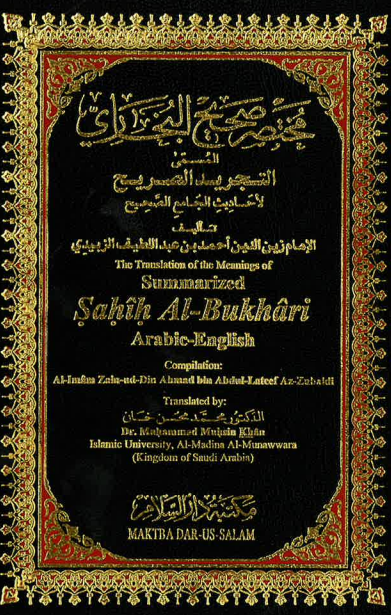 مختصر صحيح البخاري
المسمى
التجريد الصريح
لأحاديث الجامع الصحيح
تأليف
الإمام زين الدين أحمد بن عبد اللطيف الزبيدي
The Translation of the Meanings of
Summarized
Ṣaḥîḥ Al-Bukhâri
Arabic-English
Compilation:
Al-Imâm Zain-ud-Din Ahmad bin Abdul-Lateef Az-Zubaidi
Translated by:
الدكتور محمد محسن خان
Dr. Muḥammad Muḥsin Khân
Islamic University, Al-Madina Al-Munawwara
(Kingdom of Saudi Arabia)
مكتبة دار السلام
MAKTBA DAR-US-SALAM